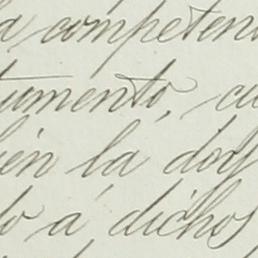 a competen
tumento, cu
ién la doy
do á dichos